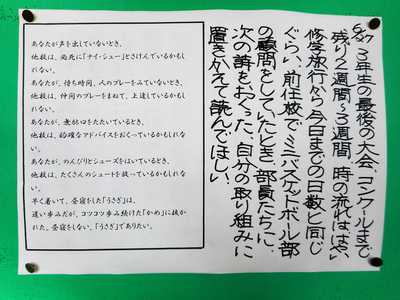 6/27 3年生の最後の大会、コンクールまで
残り2週間〜3週間。時の流れははやい
修学旅行から今日までの日数と同じ
ぐらい。前任校でミニバスケットボール部
の顧問をしていたとき、部員たちに、
次の詩をおくった。自分の取り組みに
置きかえて読んでほしい。
あなたが声を出していないとき、
他校は、必死に「ナイ・シュー」とさけんでいるかもし
れない。
あなたが、待ち時間、人のプレーをみていないとき、
他校は、仲間のプレーをまねて、上達しているかもし
れない。
あなたが、無駄口をたたいているとき、
他校は、的確なアドバイスをおくっているかもしれな
い。
あなたが、のんびりとシューズをはいているとき、
他校は、たくさんのシュートを放っているかもしれな
い。
早く着いて、昼寝をした「うさぎ」は、
遅い歩みだが、コツコツ歩み続けた「かめ」に抜か
れた。昼寝をしない、「うさぎ」でありたい。